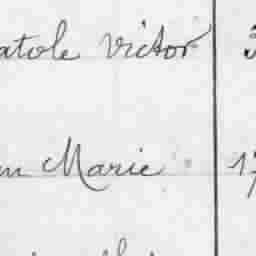 atole Victor 3
n Marie 17